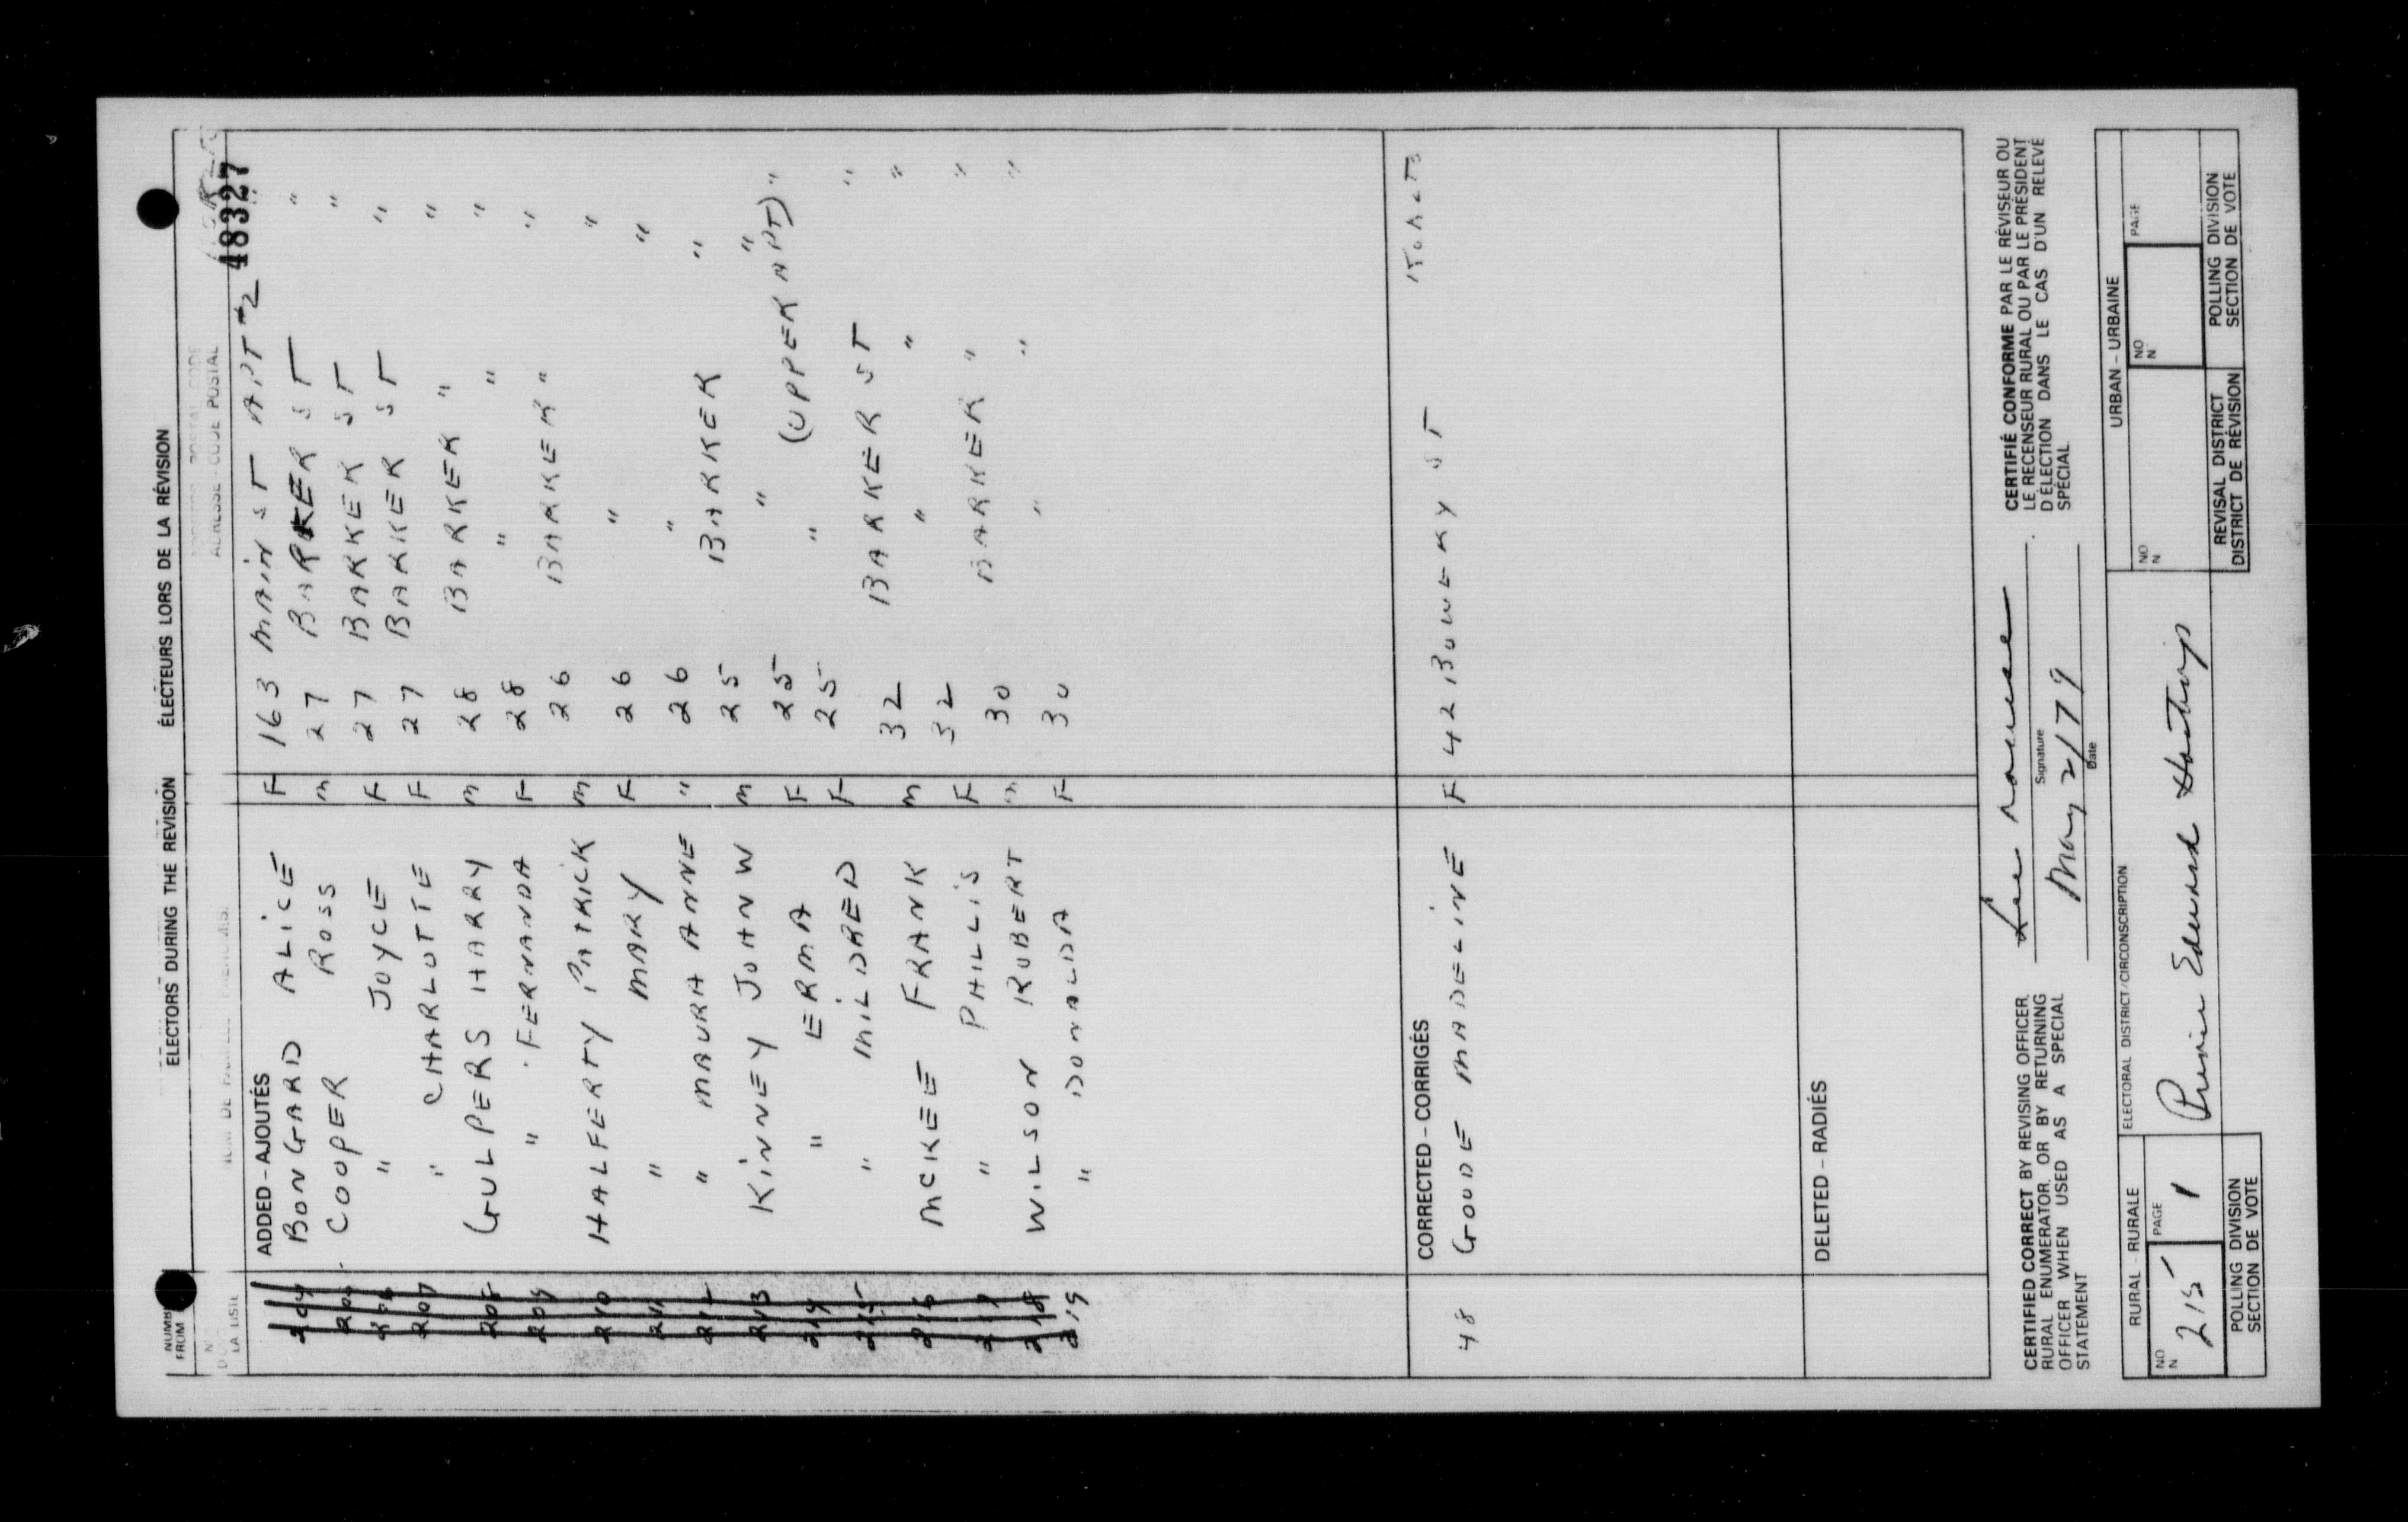 ELECTORS DURING THE REVISION ÉLECTEURS LORS DE LA RÉVISION
NUMBE
FROM
N
LA LISTE
ADRESSE - CODE POSTAL
48327
ADDED - AJOUTÉS
204 BONGARD ALICE F 163 MAIN ST APT #2 "
205 COOPER ROSS M 27 BARKER ST "
206 " JOYCE F 27 BARKER ST "
207 " CHARLOTTE F 27 BARKER ST "
208 GULPERS HARRY M 28 BARKER " "
209 " FERNANDA F 28 " " "
210 HALFERTY PATRICK M 26 BARKER " "
211 " MARY F 26 " "
212 " MAURA ANNE " 26 " "
213 KINNEY JOHN W M 25 BARKER "
214 " ERMA F 25 " "
215 " MILDRED F 25 " (UPPER APT) "
216 MCKEE FRANK M 32 BARKER ST "
217 " PHILLIS F 32 " " "
218 WILSON ROBERT M 30 BARKER " "
219 " DONALDA F 30 " " "
CORRECTED - CORRIGÉS
48 GOODE MADELINE F 42 BOWERY ST
DELETED - RADIÉS
CERTIFIED CORRECT BY REVISING OFFICER,
RURAL ENUMERATOR, OR BY RETURNING
OFFICER WHEN USED AS A SPECIAL
STATEMENT
Signature
May 2/79
Date
CERTIFIÉ CONFORME PAR LE RÉVISEUR OU
LE RECENSEUR RURAL OU PAR LE PRÉSIDENT
D'ÉLECTION DANS LE CAS D'UN RELEVÉ
SPÉCIAL
RURAL - RURALE
NO
N
215
PAGE
1
POLLING DIVISION
SECTION DE VOTE
ELECTORAL DISTRICT/CIRCONSCRIPTION
Prince Edward Hastings
URBAN - URBAINE
NO
N
NO
N
PAGE
REVISAL DISTRICT
DISTRICT DE RÉVISION
POLLING DIVISION
SECTION DE VOTE